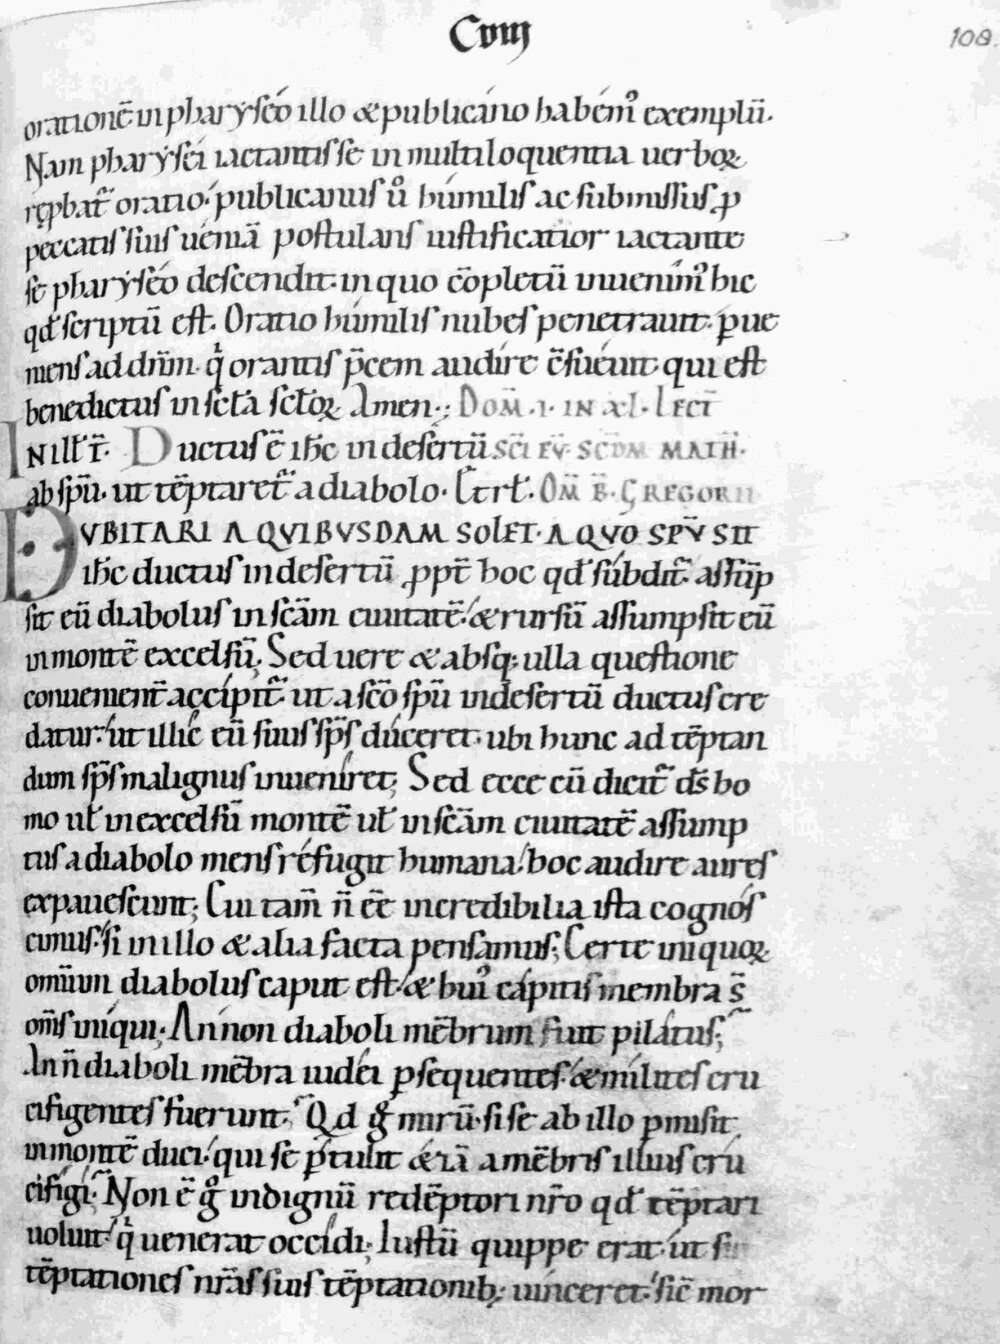 Cviij
108.
orationē in pharyséo illo & publicáno habém᷒ exemplū.
Nam pharyséi iactantis se in multiloquentia uerboꝝ
rep̱bat̃ oratio. publicanus ů húmilis ac submissus, ꝓ
peccatis suis uéniā postulans iustificatior iactante
se pharyséo descendit. in quo cōpletū inuenim᷒ hic
qđ scriptū est. Oratio húmilis nubes penetrauit. ꝑue
niens ad dn̄m. q̇ orantis p̄cem audíre c̄sueuit. qui est
benedictus in sc̄ła sc̄łoꝝ Amen.; DOM̄ .I. IN XL. LECT̄
IN ILŁ T̄. Ductus ē ihc̄ in desertū SC̄I EV̄ SCDM MATH̄.
ab sp̄u. ut tēptaret̃ a diabolo. &rł. OM̄ B̄. GREGORII
DVBITARI A QVIBVSDAM SOLET. A QVO SPV̄ SIT
ihc̄ ductus in desertū ꝓpt̄ hoc qđ súbdit̃. assūp
sit eū diabolus in scām ciuitatē. & rursū assumpsit eū
in montē excelsū; Sed uere & absq; ulla questione
conuenient̄ accípit̃ ut a scō sp̄u in desertū ductus cre
datur. út illíc eū suus sp̄s dúceret. ubi hunc ad tēptan
dum sp̄s malignus inueníret; Sed ecce cū dicit̃ ds̄ ho
mo uł in excelsū montē uł in scām ciuitatē assump
tus a diabolo mens réfugit humana. hoc audire aures
expauescunt; Cui tam̄ n̄ eē incredibilia ista cognós
cimus. si in illo & alia facta pensamus; Certe iniquoꝝ
omīum diabolus caput est. & hui᷒ cápitis membra s̄
om̄s iníqui; An non diaboli mēbrum fuit pilátus;
An n̄ diaboli mēbra iudéi ꝑsequentes. & mílites cru
cifigentes fuerunt; Qd g̊ mirū. si se ab illo ꝑmisit
in montē duci. qui se ꝑtulit & iā a mēbris illius cru
cifígi; Non ē g̊ indignū redēptori nr̄o qđ tēptari
uoluit. q̇ uenerat occídi; Iustū quippe erat. út s
tēptationes nrās suis tēptationib; uínceret. sic̄ mor